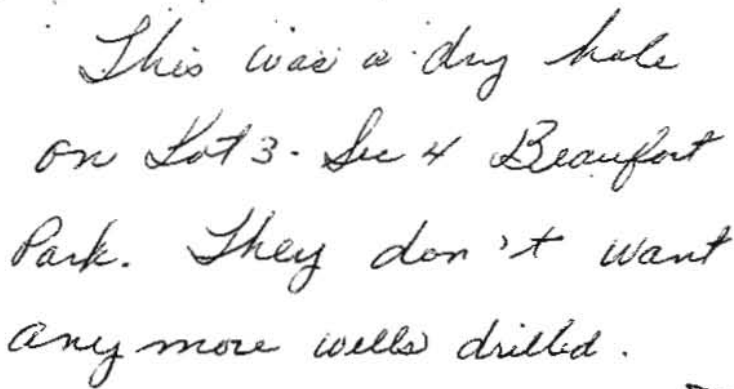 This was a dry hole
on Lot 3 - Sec 4 Beaufort
Park. They don't want
any more wells drilled.